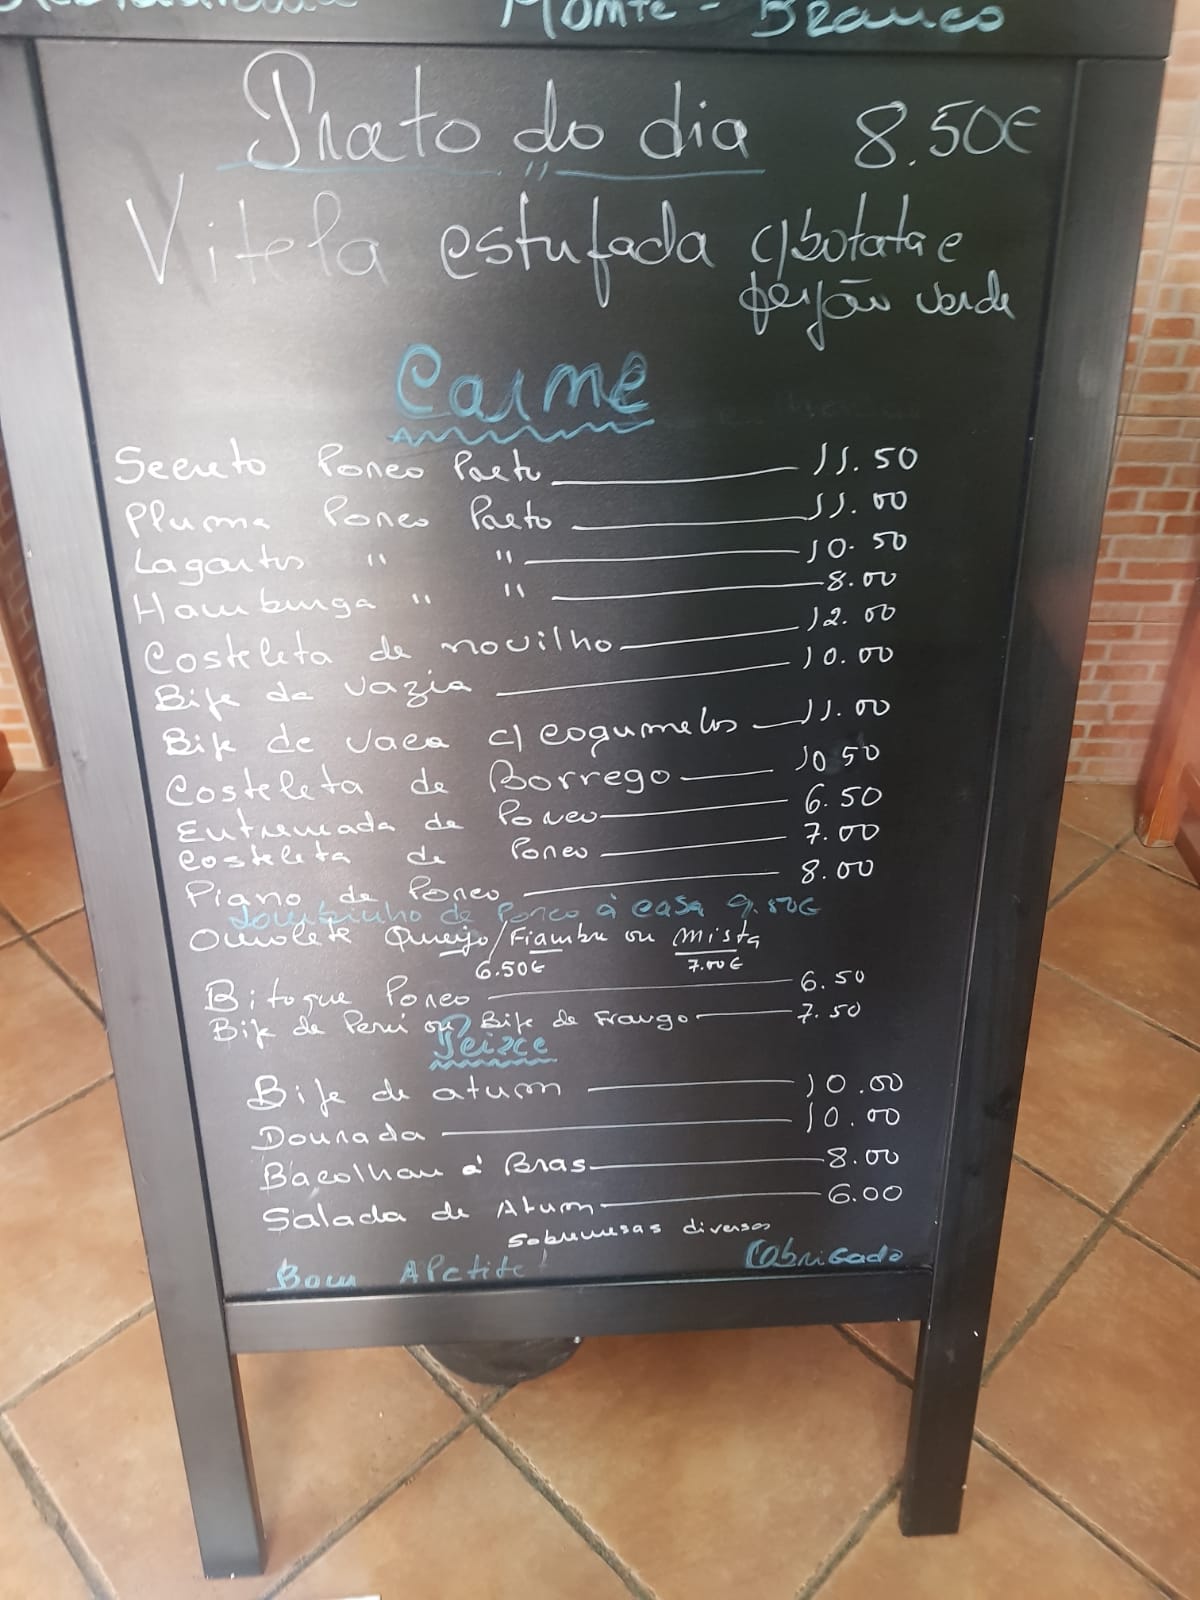 Monte - Branco
Prato do dia 8.50€
Vitela estufada c/batata e
feijão verde
Carne
Secreto Porco Preto 11.50
Pluma Porco Preto 11.00
Lagartos " " 10.50
Hamburga " " 8.00
Costeleta de novilho 12.00
Bife da vazia 10.00
Bife de vaca c/ cogumelos 11.00
Costeleta de Borrego 10 50
Entremeada de Porco 6.50
Costeleta de Porco 7.00
Piano de Porco 8.00
Lombinho de Porco à casa 9.50€
Omolete Queijo/Fiambre ou Mista
6.50€ 7.00€
Bitoque Porco 6.50
Bife de Peru ou Bife de Frango 7.50
Peixe
Bife de atum 10.00
Dourada 10.00
Bacalhau á Bras 8.00
Salada de Atum 6.00
Sobremesas diversas
Bom Apetite! Obrigado